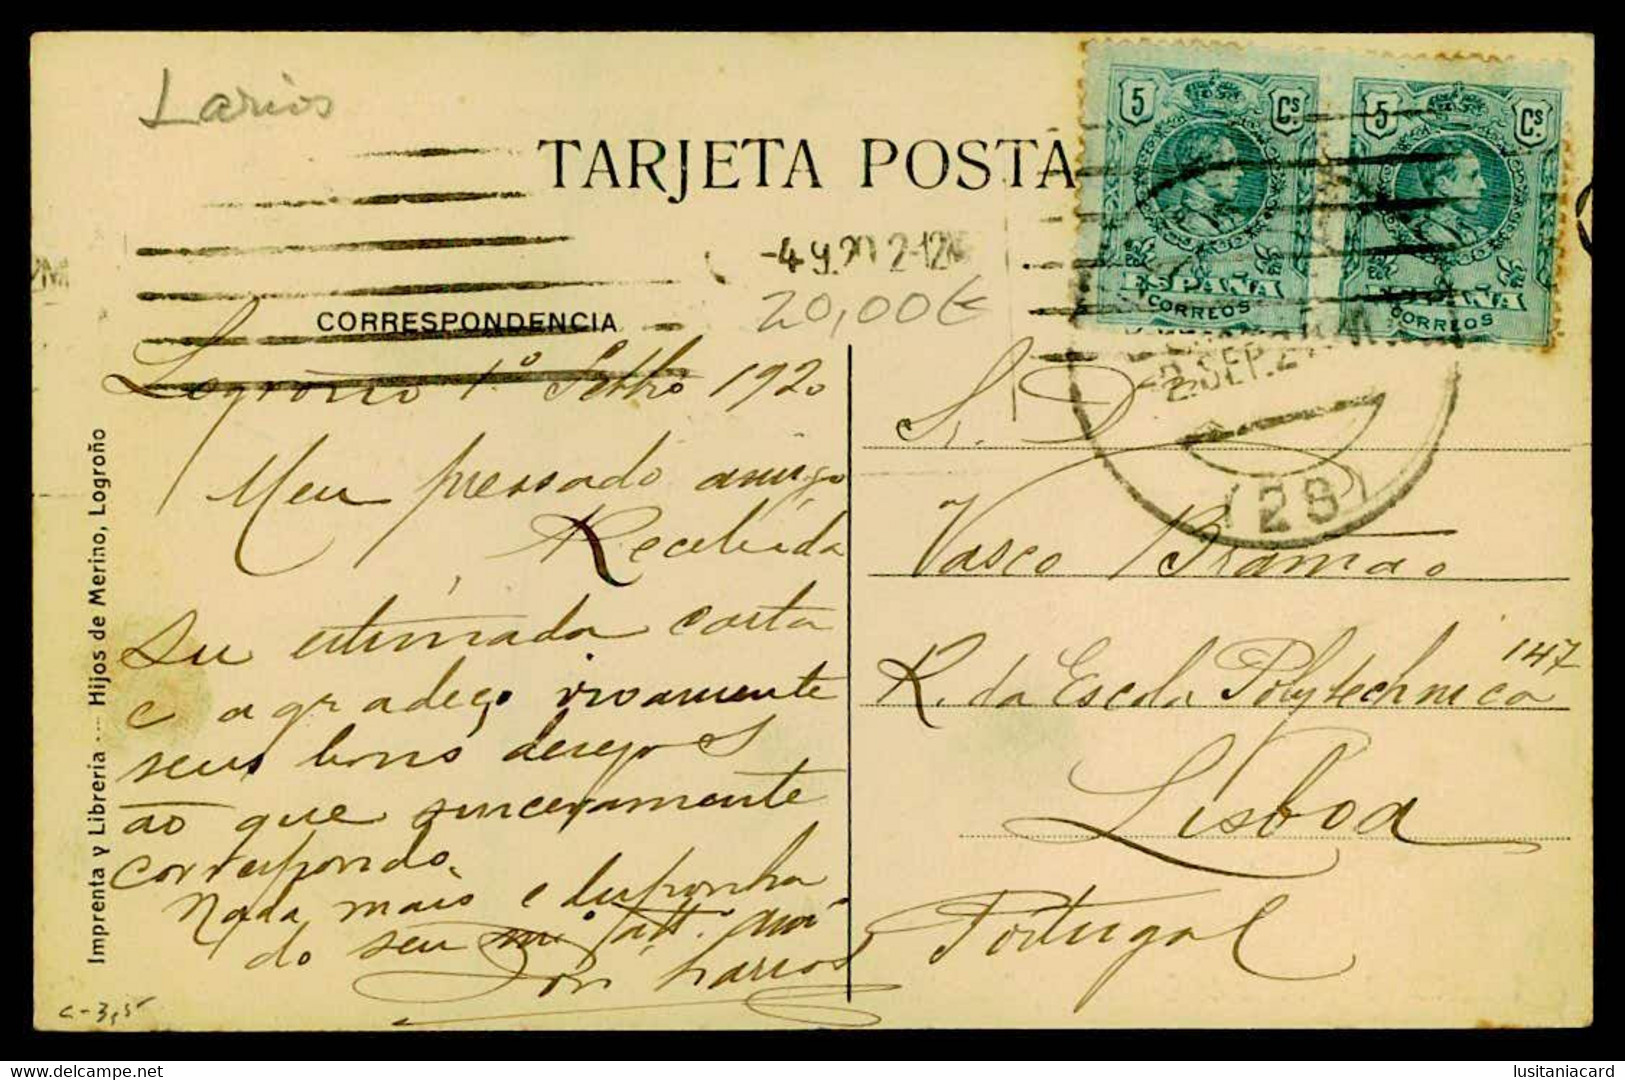 Larios
TARJETA POSTA
5 Cs
5 Cs
ESPAÑA
CORREOS
ESPAÑA
CORREOS
-4 9.20 2-12
20,00€
CORRESPONDENCIA
2.SEP.2
(28)
Logroño 1º Setbro 1920
Meu pressado amigo
Recebida
su estimada carta
e agradeço vivamente
seus bons desejos
ao que sinceramente
correspondo.
Nada mais e disponha
do seu mº att.
Larios
S. D.
Vasco Bramão
R. da Escola Polytechnica 147
Lisboa
Portugal
Imprenta y Librería --- Hijos de Merino, Logroño
c-3,5
delcampe.net
lusitaniacard